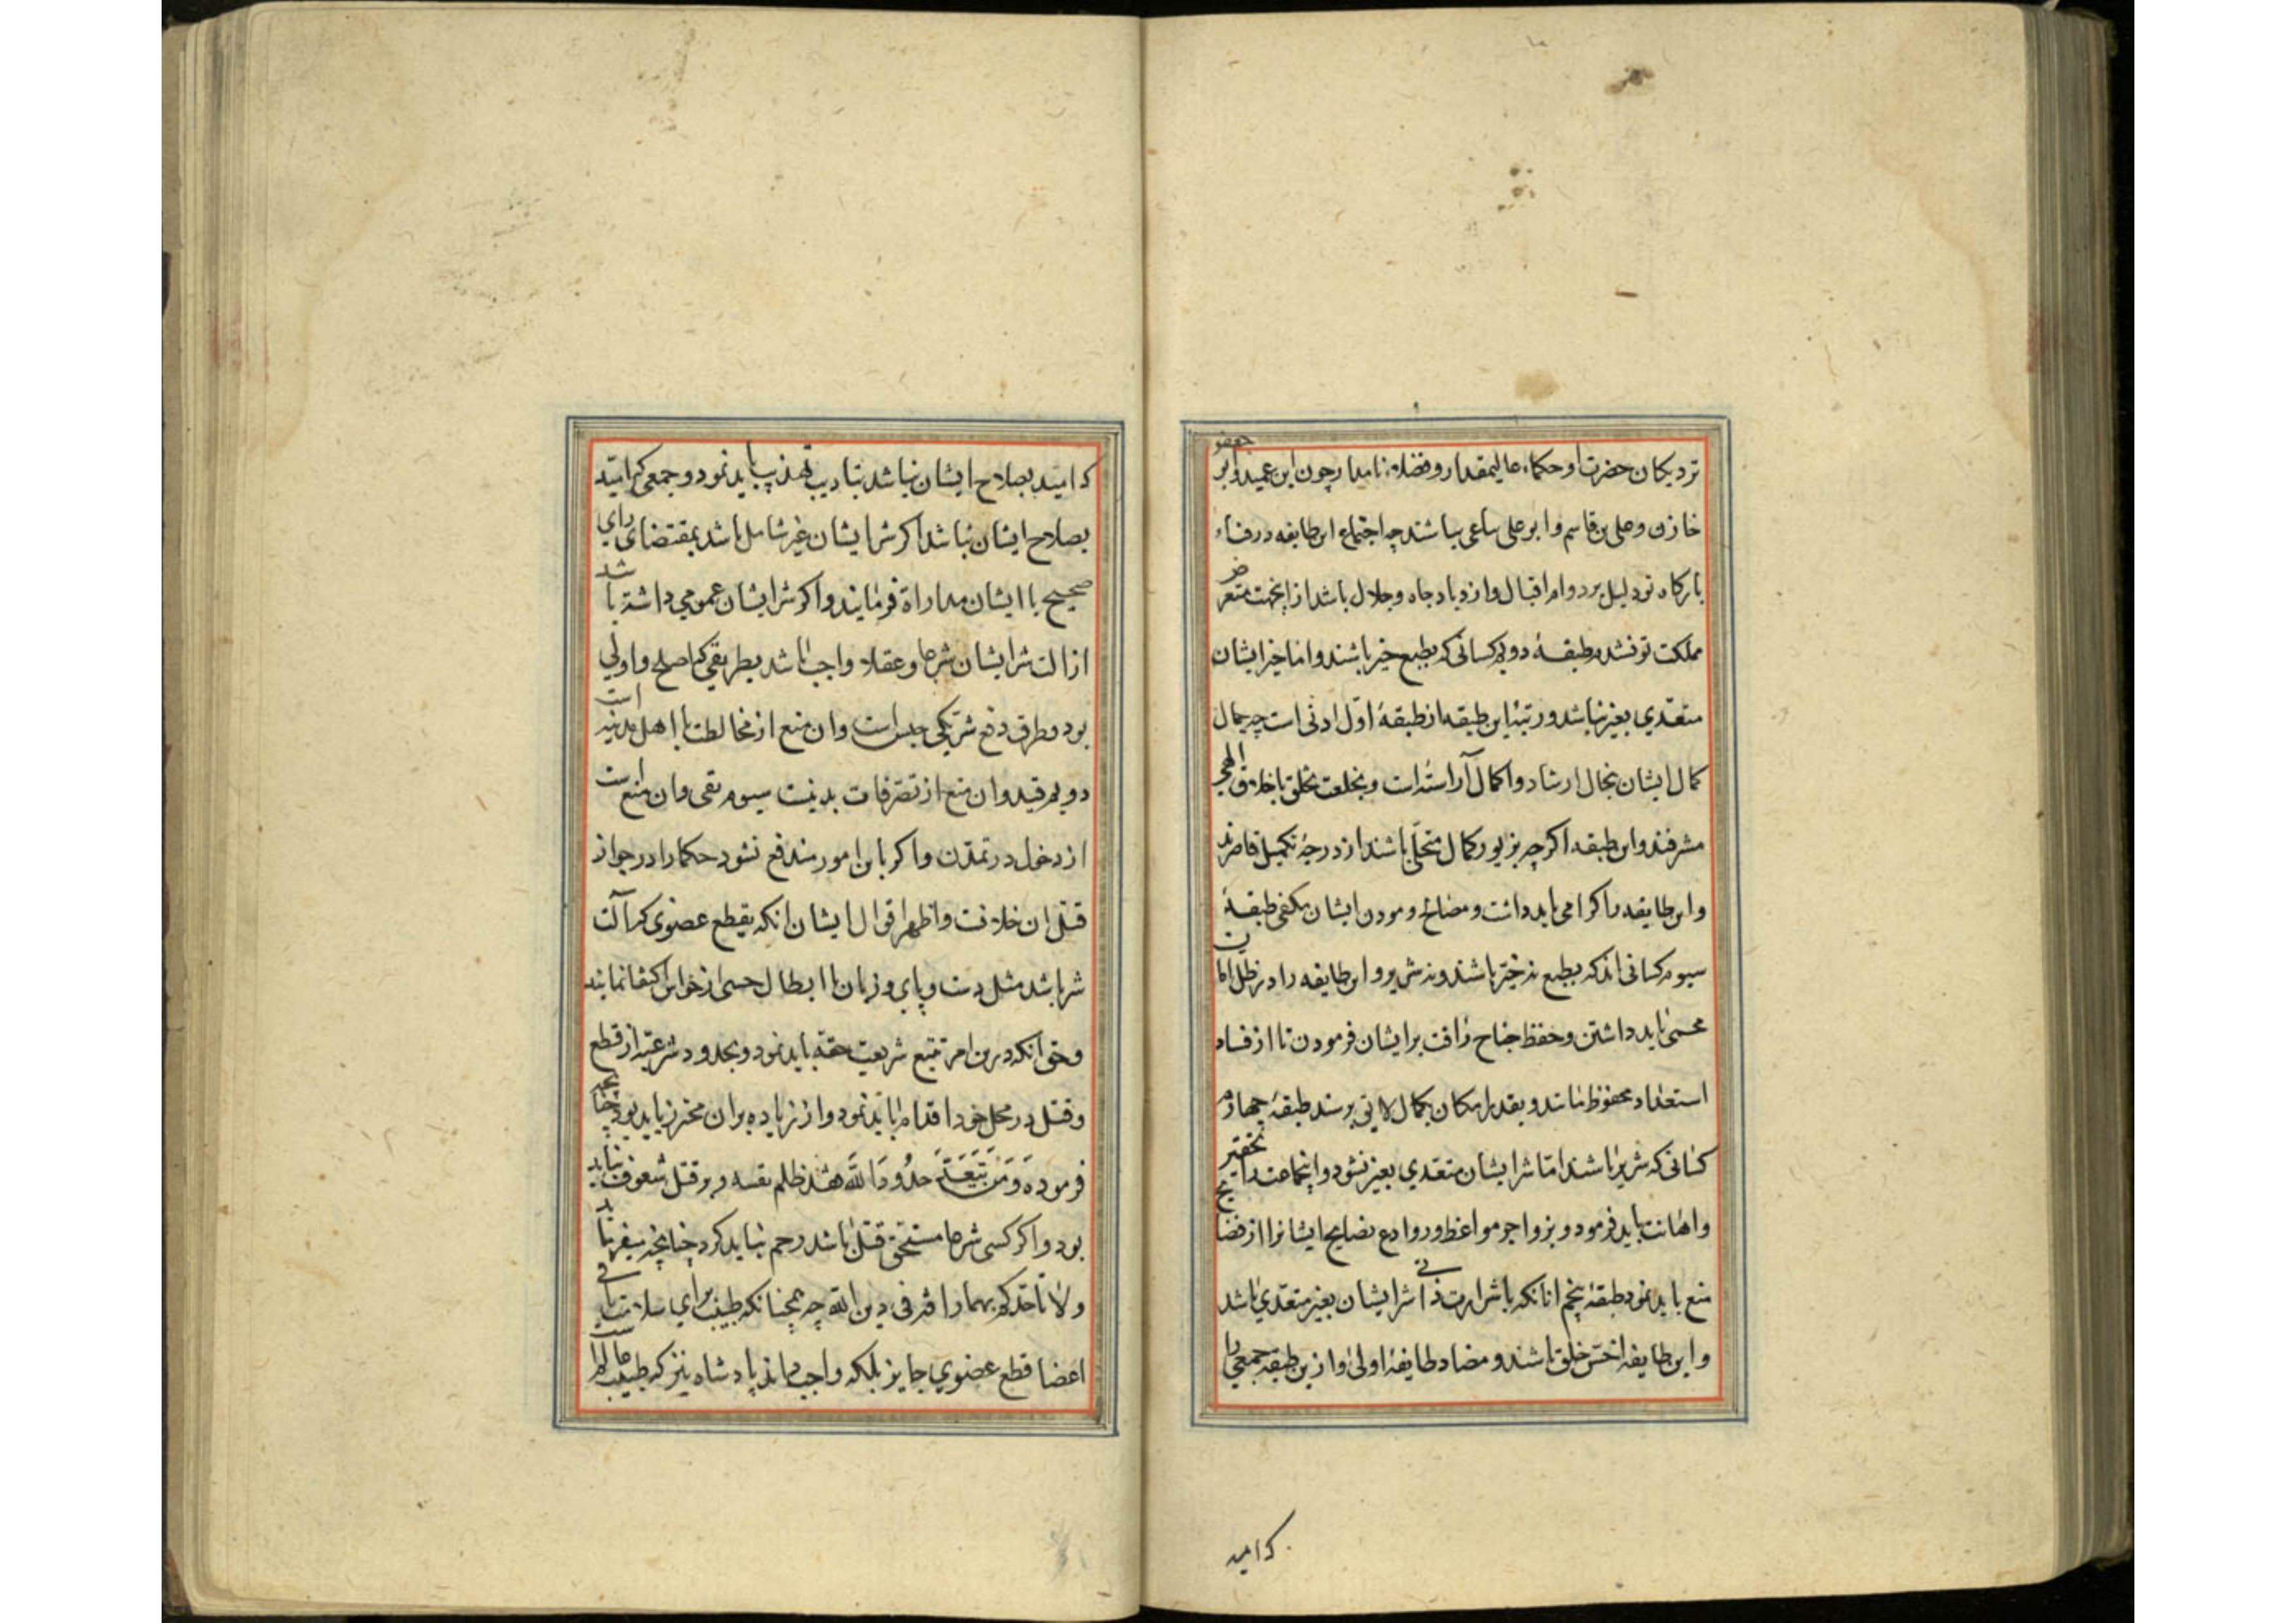 نزدیکان حضرت او حکماء عالیمقدار و فضلاء نامدار چون ابن عمید و ابو جعفر
خازن و علی بن قاسم و ابو علی ساعی باشند چه اجتماع این طایفه در فناء
بارکاه تو دلیل بر دوام اقبال و ازدیاد جاه و جلال باشد از اینجهت متعرض
مملکت تو نشدم طبقهٔ دویم کسانی که بطبع خیر باشند و اما خیر ایشان
متعدی بغیر نباشد و رتبهٔ این طبقه از طبقهٔ اول ادنی است چه جمال
کمال ایشان بخال ارشاد و اکمال آراسته است و بخلعت تخلق باخلاق الهی
مشرفند و این طبقه اکرچه بزیور کمال متحلی باشند از درجهٔ تکمیل قاصرند
و این طایفه را کرامی باید داشت و مصالح و مودن ایشان مکفی طبقهٔ
سیوم کسانی اند که بطبع نه خیر باشند و نه شریر و این طایفه را در ظل امان
محمی باید داشتن و حفظ جناح رأفت بر ایشان فرمودن تا از فساد
استعداد محفوظ مانند و بقدر امکان بکمال لایق برسند طبقهٔ چهارم
کسانی که شریر باشند اما شر ایشان متعدی بغیر نشود و اینجماعت را تحقیر
و اهانت باید فرمود و بزواجر مواعظ و روادع نصایح ایشانرا از قضایح
منع باید نمود طبقهٔ پنجم انانکه با شرارت ذاتی شر ایشان بغیر متعدی باشد
و این طایفه اخس خلق باشند و مضاد طایفهٔ اولی و ازین طبقه جمعی را
که امید
که امید بصلاح ایشان نباشد بتادیب تهذیب باید نمود و جمعی که امید
بصلاح ایشان نباشد اکر شر ایشان غیر شامل باشد بمقتضای رای
صحیح با ایشان مداراة فرمایند و اکر شر ایشان عمومی داشته باشد
ازالت شر ایشان شرعا و عقلا واجب باشد بطریقی که اصلح و اولی
بود و طرق دفع شر یکی حبس است و ان منع از مخالطت با اهل مدینه است
دویم قید و ان منع از تصرفات بدنیست سیوم نفی و ان منع است
از دخول در تمدن و اکر باین امور مندفع نشود حکما را در جواز
قتل ان خلافت و اظهر اقوال ایشان انکه بقطع عضوی که آلت
شر باشد مثل دست و پای و زبان یا ابطال حسی از حواس اکتفا نمایند
و حق انکه درین امر تتبع شریعت حقه باید نمود و بحدود شرعیه از قطع
و قتل در محل خود اقدام باید نمود و از زیاده بران محترز باید بود چنانچه
فرموده وَمَن یَتَعَدَّ حُدُودَ اللَّه فقد ظلم نفسه و بر قتل شعوف نباید
بود و اکر کسی شرعا مستحق قتل باشد رحم نباید کرد چنانچه میفرماید
ولا تاخذکم بهما رافة فی دین الله چه همچنانکه طبیب برای سلامت باقی
اعضا قطع عضوی جایز بلکه واجب داند پادشاه نیز که طبیب عالم است